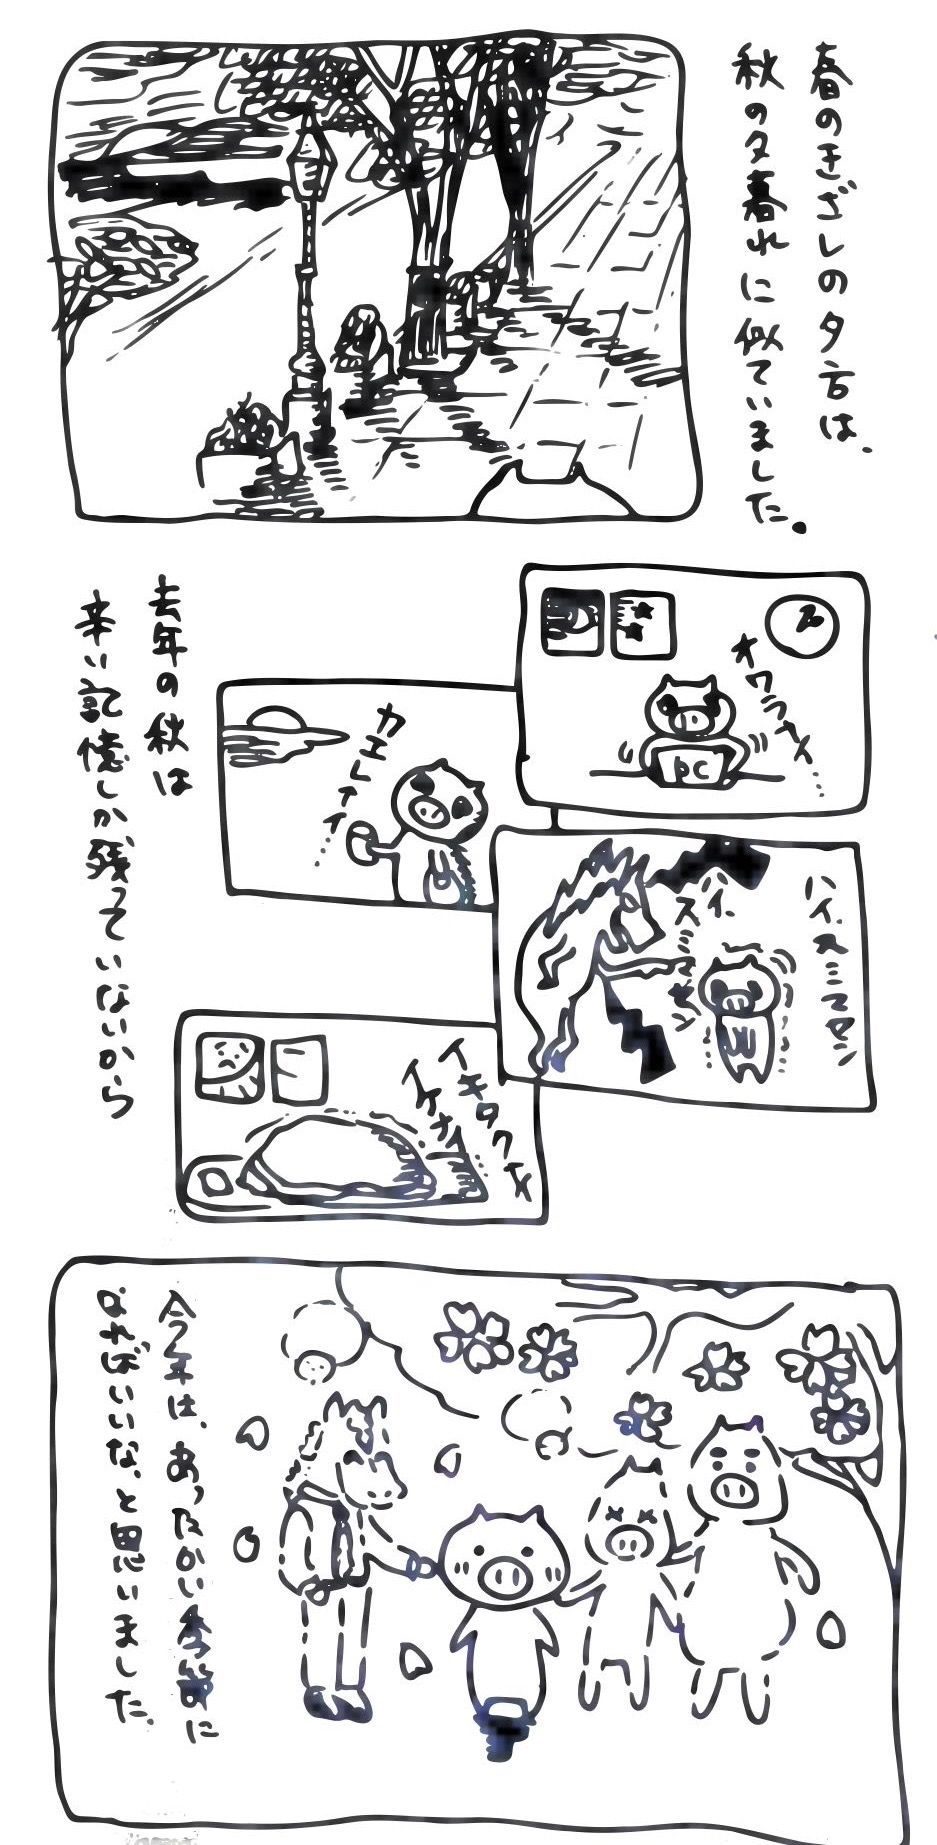 春のきざしの夕方は、
秋の夕暮れに似ていました。
オワラナイ…
PC
カエレナイ…
ハイ、スミマセン
ハイ、
スミマセン
去年の秋は
辛い記憶しか残っていないから
イキタクナ
イケナイ…
今年は、あったかい季節に
なればいいな、と思いました。